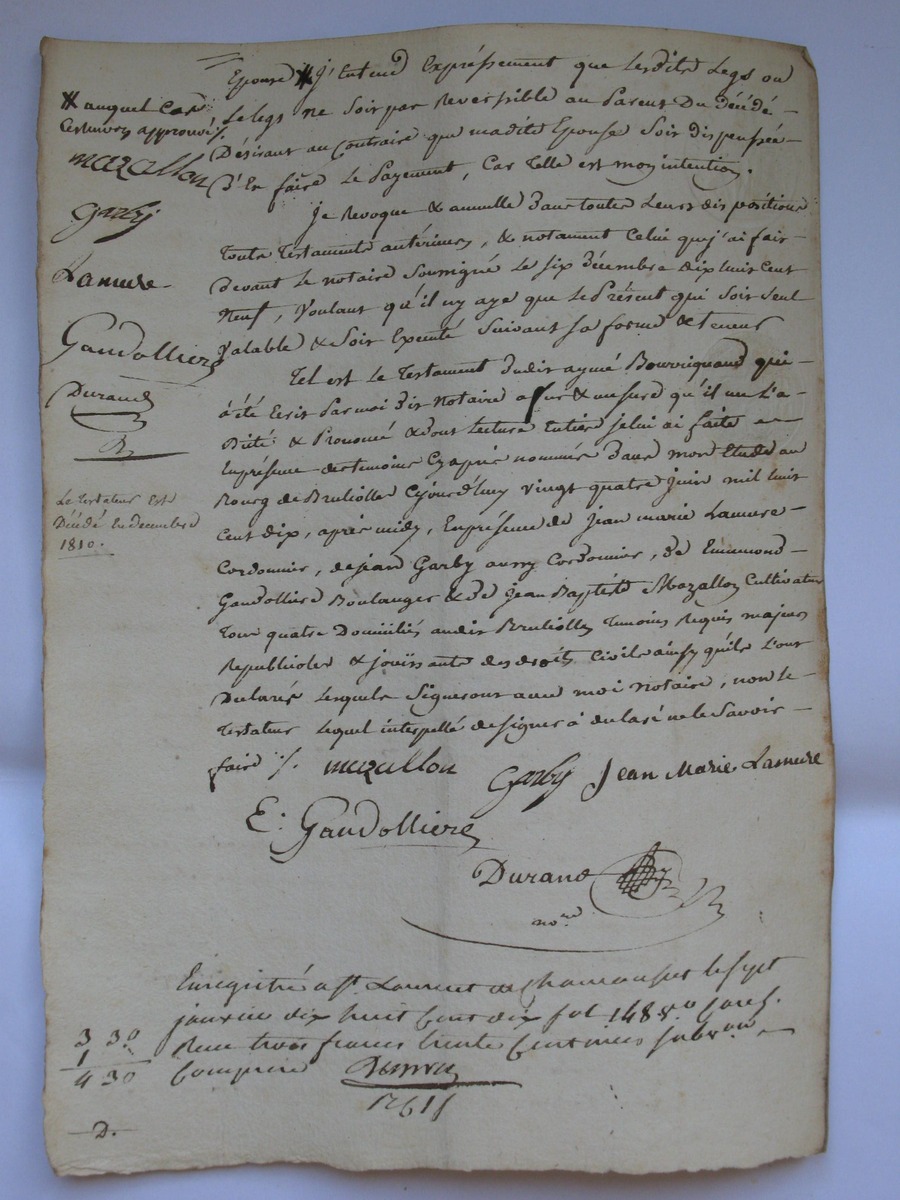 Epouse # j'Entend Expréssement que lesdits Legs ou
Le legs ne Soit pas Reversible au Parens Du décédé
Désirant au Contraire que madite Epouse Soit dispensée
D'En faire Le Payement, Car Telle est mon intention.
# auquel Cas
mazallon
Garby
Lamure
Gaudolliere
Durand
Je Revoque & annulle dans toutes Leurs dis positions
Touts Testaments antérieurs, & notament Celui que j'ai fait
devant le notaire Sousigné Le Six décembre dix huit Cent
Neuf, Voulant qu'il ny aye que Le Présent qui Soit Seul
Valable & Soit Exécuté Suivant Sa forme & teneur
Tel est Le Testament dudit aymé Bourriquand qui
à été Ecrit Par moi dit Notaire a fur & mesure qu'il me L'a
Dicté & Prononcé & dont Lecture Entière je lui ai faite
En présence des temoins Cy après nommés dans mon Etude au
Bourg de Brullioles Cejourd'huy vingt quatre juin mil huit
Cent dix, après midy, En présence de jean marie Lamure
Cordonnier, de jean Garby aussy Cordonnier, de Emmond
Gaudolliere Boulanger & de Jean Baptiste Mazallon Cultivateur
Tous quatre Domiciliés audit Brullioles Temoins Requis majeurs
Republicoles & jouissants des droits Civils ainsy qu'ils L'ont
Déclarés Lesquels Signeront avec moi notaire, non le
Testateur Lequel interpellé de signer à déclaré ne le Savoir
faire ./.
Le testateur Est
Décédé En decembre
1810.
mazallon Garby Jean Marie Lamure
E. Gaudolliere
Durand
no.re
Enregistré a St. Laurent de Chamousset le sept
janvier dix huit Cent dix fol 148
Reçu trois francs trente Centimes
Comprise
3 30
1
4 30
D.